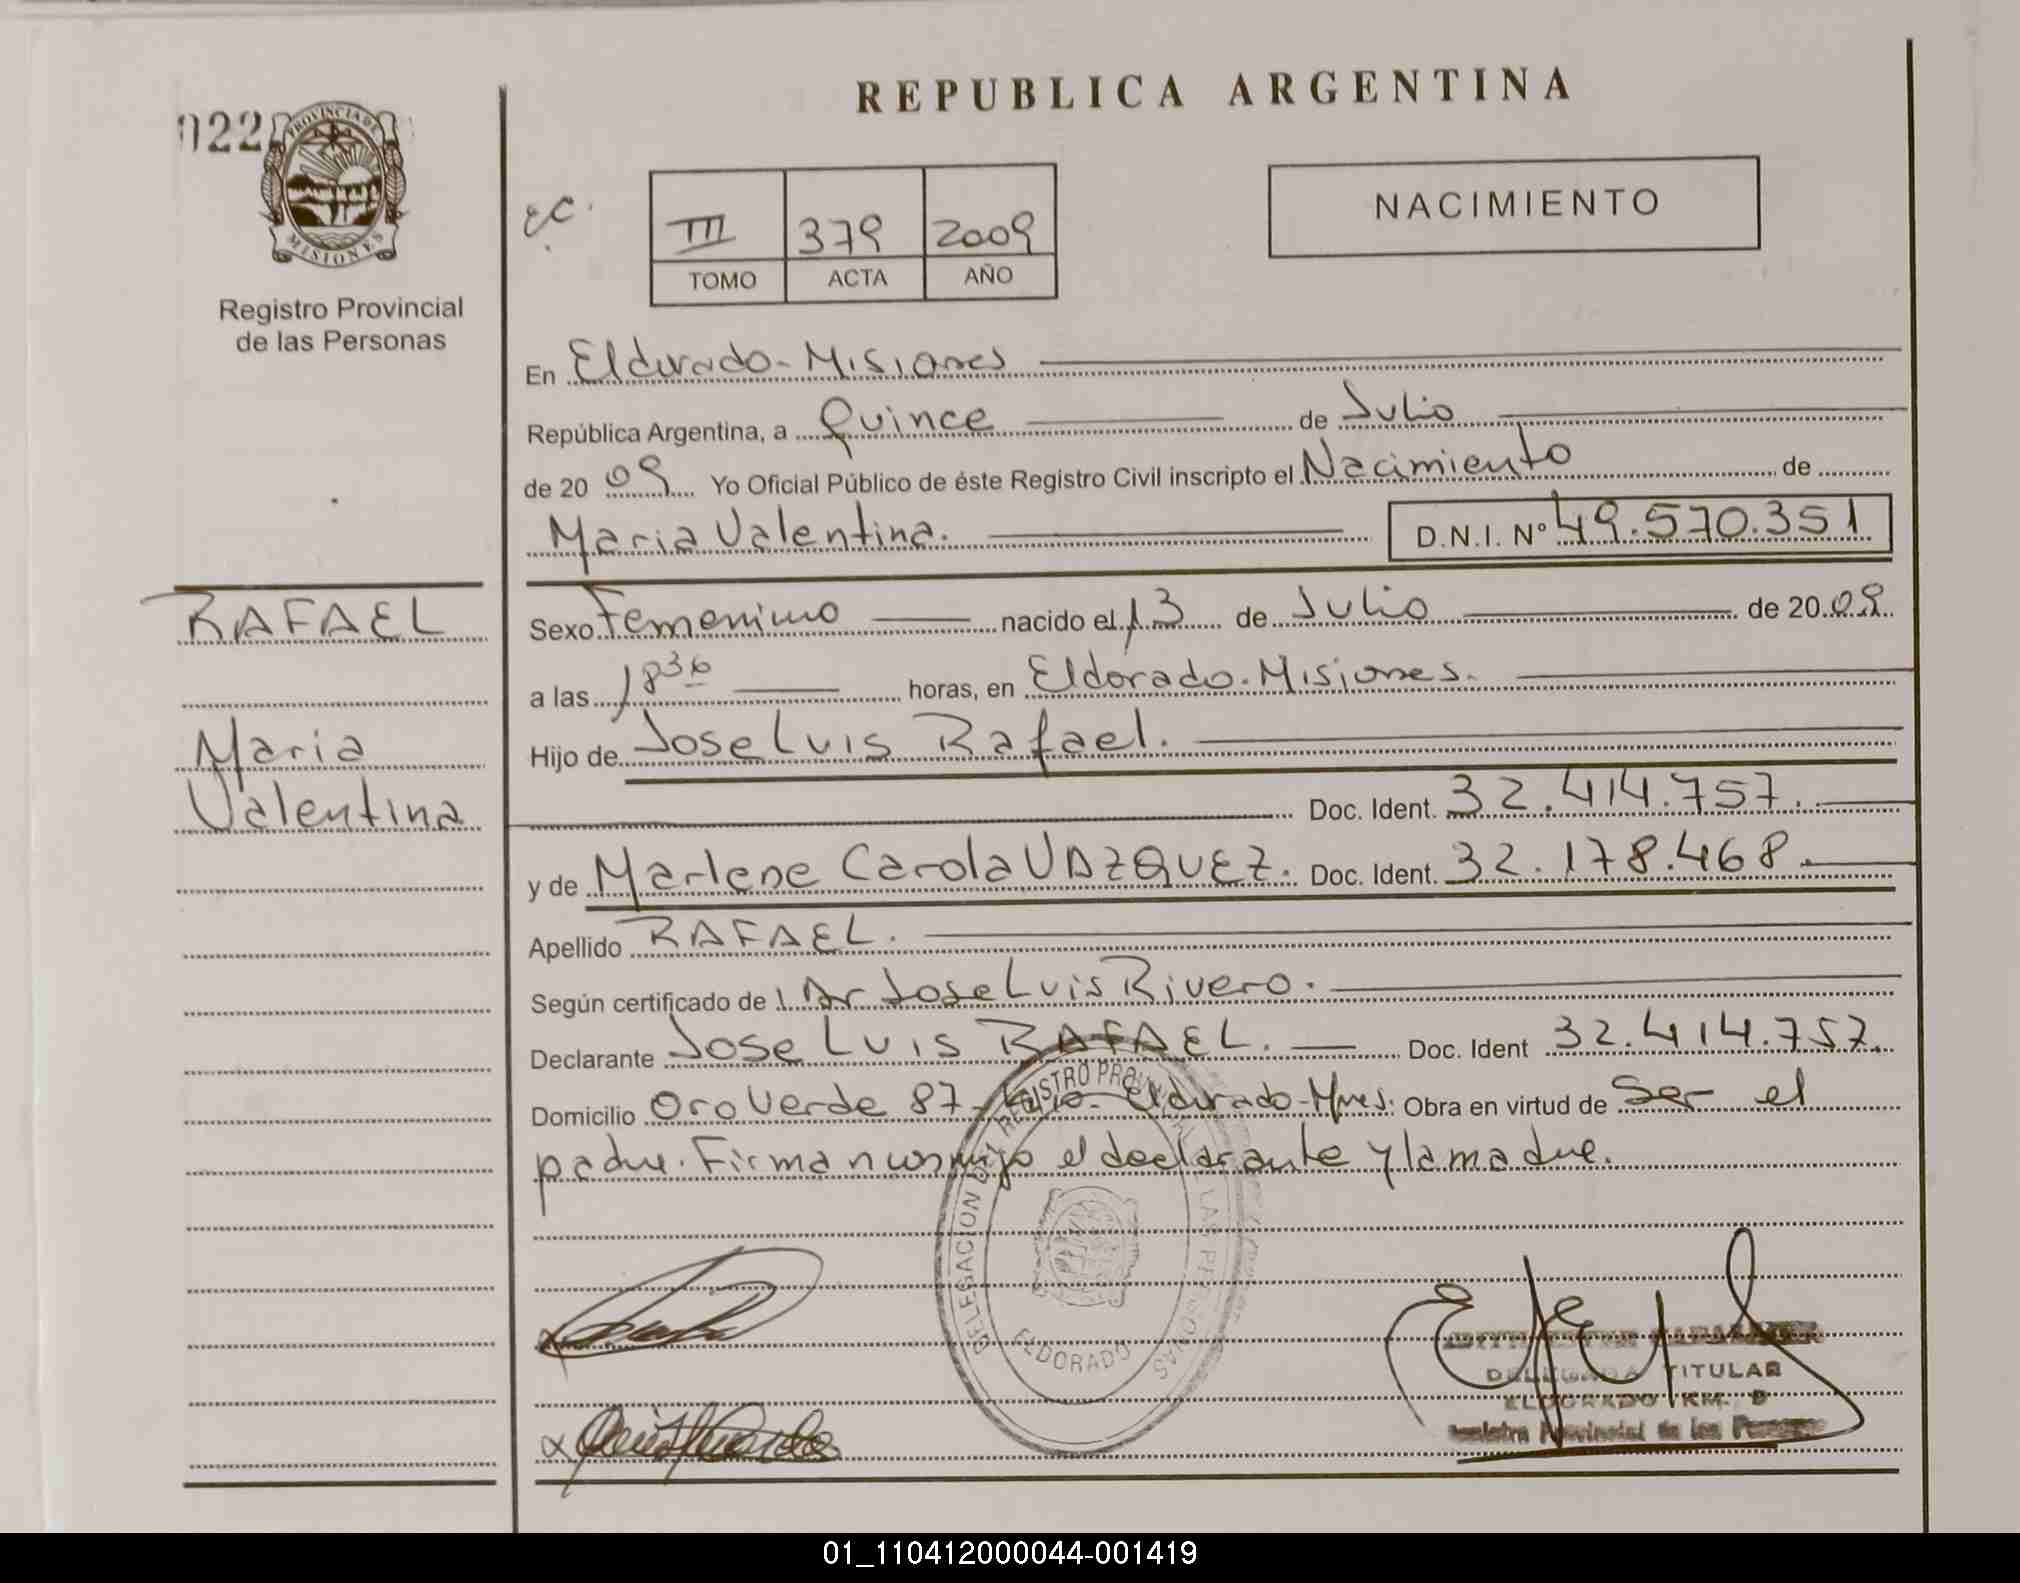 REPUBLICA ARGENTINA
022
PROVINCIA DE
MISIONES
Registro Provincial
de las Personas
NACIMIENTO
III 379 2009
TOMO ACTA AÑO
En Eldorado - Misiones
República Argentina, a Quince de Julio
de 20 09 Yo Oficial Público de éste Registro Civil inscripto el Nacimiento de
Maria Valentina. D.N.I. Nº 49.570.351
RAFAEL
Maria
Valentina
Sexo Femenino nacido el 13 de Julio de 20 09
a las 18 36 horas, en Eldorado - Misiones.
Hijo de Jose Luis Rafael.
Doc. Ident. 32.414.757.
y de Marlene Carola VAZQUEZ. Doc. Ident. 32.178.468.
Apellido RAFAEL.
Según certificado de Dr Jose Luis Rivero.
Declarante Jose Luis RAFAEL. Doc. Ident 32.414.757.
Domicilio Oro Verde 87 - Eldorado - Mnes. Obra en virtud de Ser el
padre. Firman conmigo el declarante y la madre.
DELEGACION DEL REGISTRO PROVINCIAL DE LAS PERSONAS
ELDORADO
DELEGADA TITULAR
ELDORADO KM. 9
Registro Provincial de las Personas
01_110412000044-001419